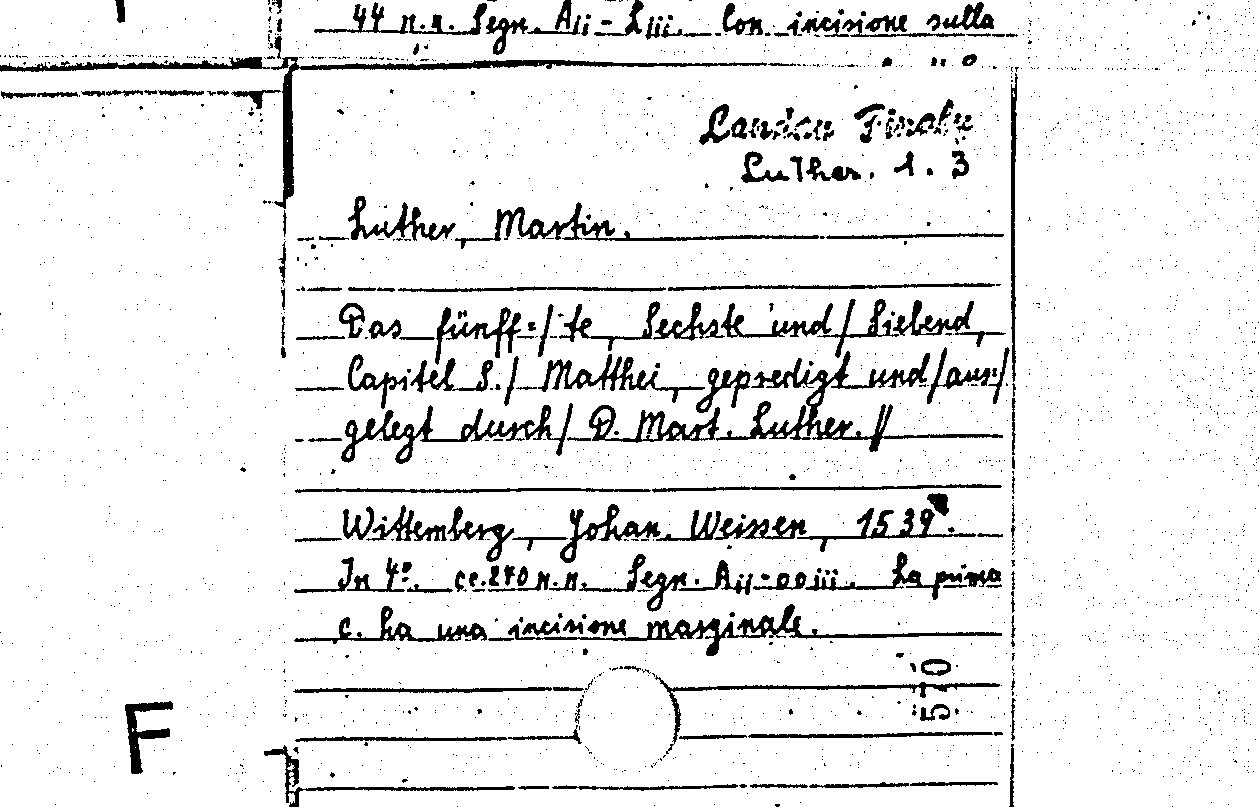 44 n.n. Segn. Aii - Liii. Con incisione sulla
Landau Finaly
Luther. 1. 3
Luther, Martin.
Das fünff=/te, Sechste und/ Siebend,
Capitel S./ Matthei, gepredigt und/aus/
gelegt durch/ D. Mart. Luther.//
Wittemberg, Johan. Weissen, 1539.
In 4º. cc.270 n.n. Segn. Aii-ooiii. La prima
c. ha una incisione marginale.
570
F